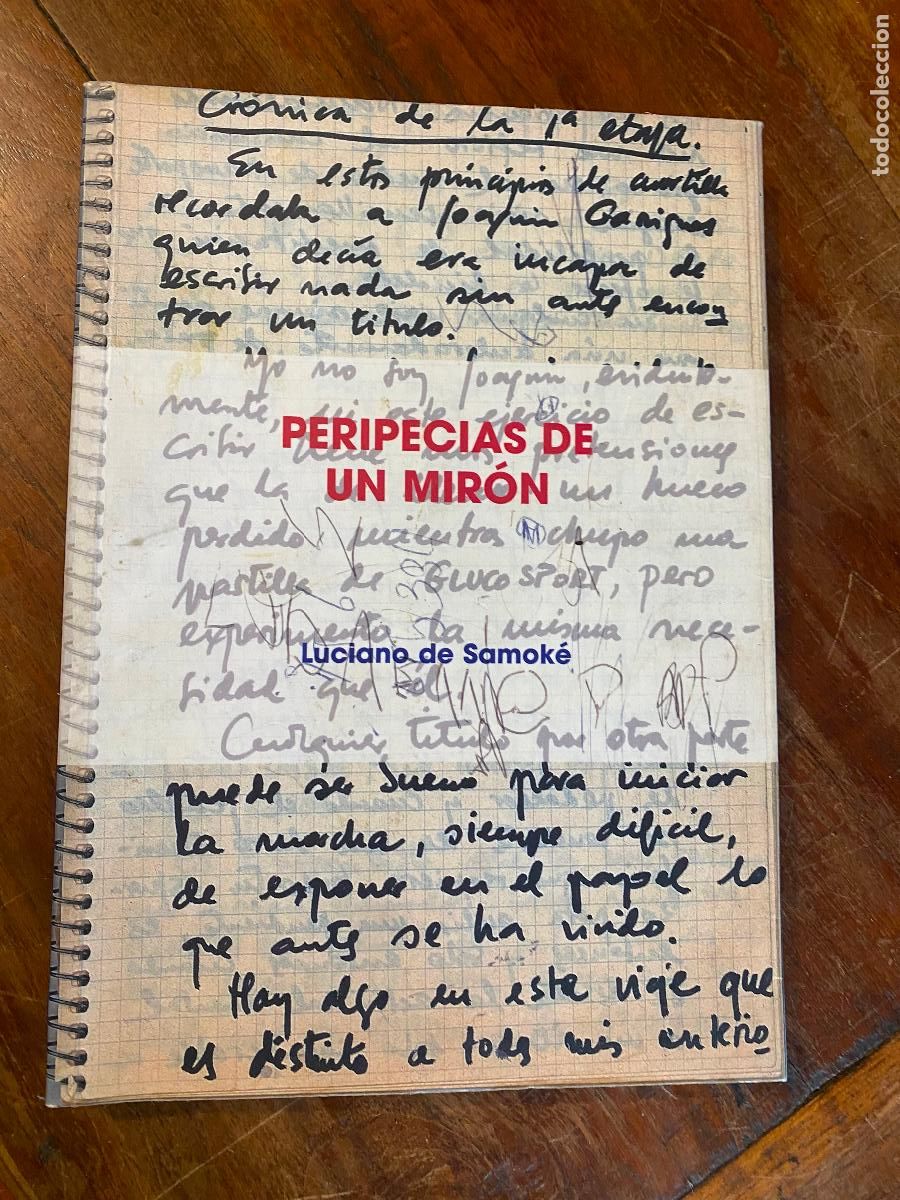 Crónica de la 1ª etapa.
En estos principios de cuartilla
recordaba a Joaquin Garrigues
quien decía era incapaz de
escribir nada sin ante encon
trar un titulo.
Yo no soy Joaquin, evidente-
mente, ni este ejercicio de es-
cribir tiene pretensiones
que la un hueco
perdido mientras chupo una
pastilla de GLUCOSPORT, pero
experimento la misma nece-
sidad que él.
Cualquier titulo que otra parte
puede ser bueno para iniciar
la marcha, siempre dificil,
de exponer en el papel lo
que antes se ha vivido.
Hay algo en este viaje que
es distinto a todos mis anterio
PERIPECIAS DE
UN MIRÓN
Luciano de Samoké
todocoleccion